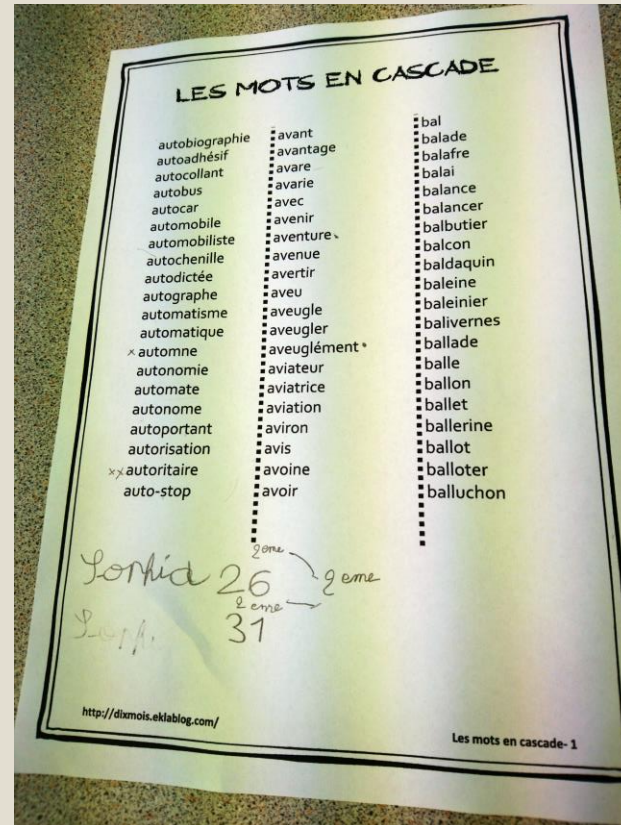 LES MOTS EN CASCADE
autobiographie
autoadhésif
autocollant
autobus
autocar
automobile
automobiliste
autochenille
autodictée
autographe
automatisme
automatique
x automne
autonomie
automate
autonome
autoportant
autorisation
xx autoritaire
auto-stop
avant
avantage
avare
avarie
avec
avenir
aventure
avenue
avertir
aveu
aveugle
aveugler
aveuglément
aviateur
aviatrice
aviation
aviron
avis
avoine
avoir
bal
balade
balafre
balai
balance
balancer
balbutier
balcon
baldaquin
baleine
baleinier
balivernes
ballade
balle
ballon
ballet
ballerine
ballot
balloter
balluchon
2eme
Sophia 26 2eme
2eme
31
http://dixmois.eklablog.com/
Les mots en cascade- 1